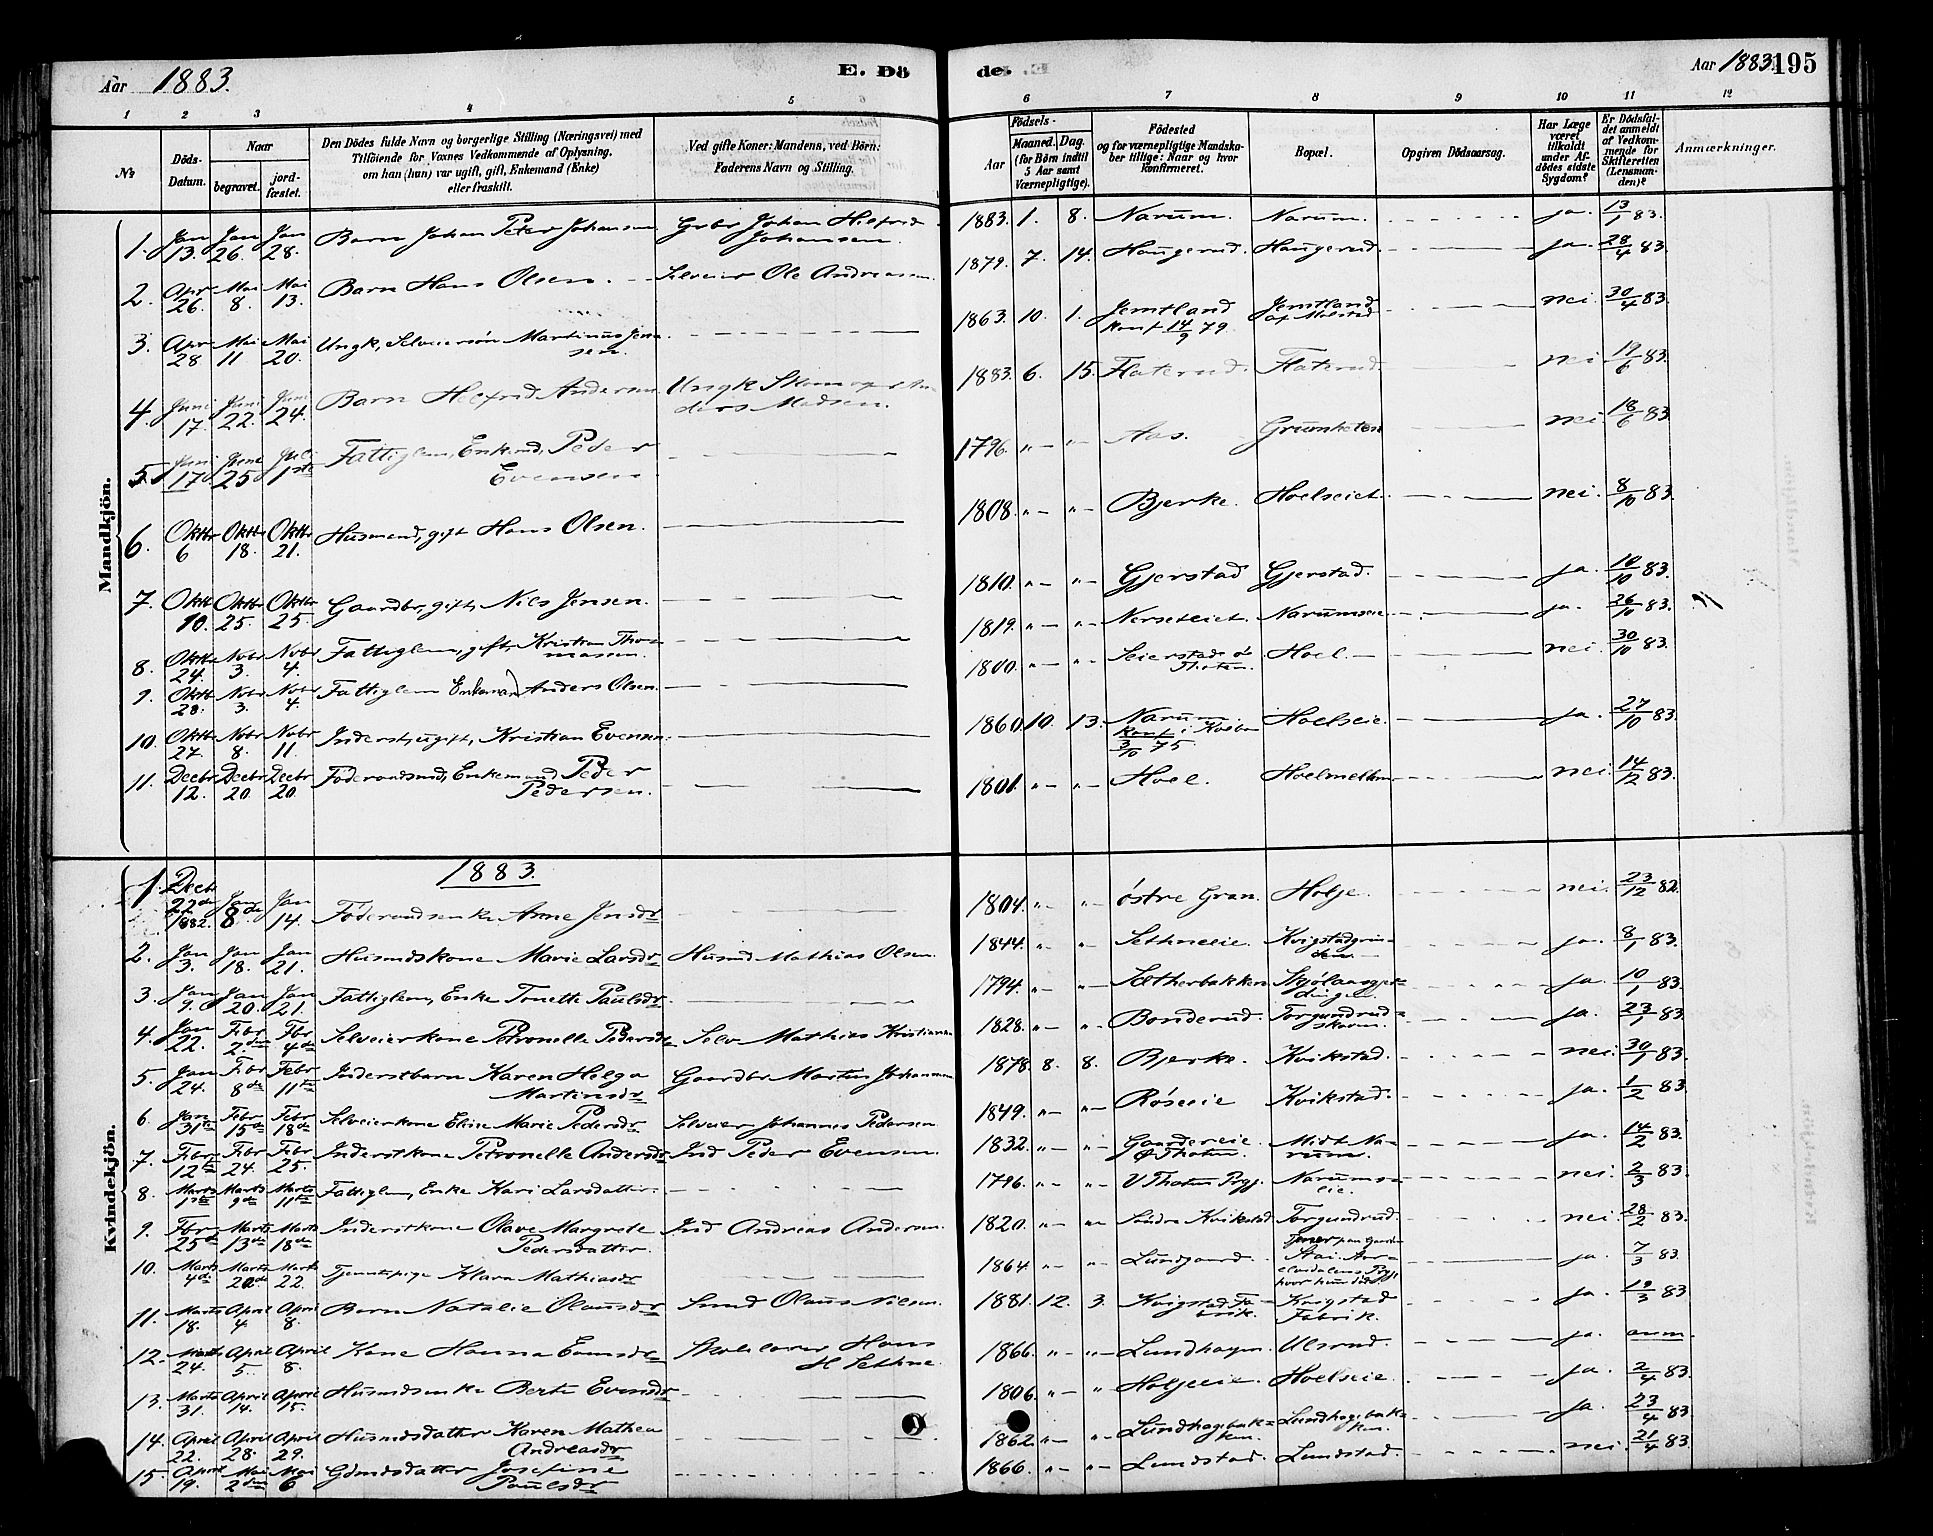 Aar 1883.
E. Dö
de.
Aar 1883. 195
1 2 3 4 5
6 7 8 9 10 11 12
No
Döds-Datum.
Naar
begravet.
jordfæstet.
Den Dödes fulde Navn og borgerlige Stilling (Næringsvei) med
Tilföiende for Voxnes Vedkommende af Oplysning,
om han (hun) var ugift, gift, Enkemand (Enke)
eller fraskilt.
Ved gifte Koner: Mandens, ved Börn:
Faderens Navn og Stilling.
Födsels-
Aar
Maaned. Dag.
(for Börn indtil
5 Aar samt
Værnepligtige).
Födested
og for værnepligtige Mandskaber tillige: Naar og hvor
konfirmeret.
Bopæl.
Opgiven Dödsaarsag.
Har Læge
været
tilkaldt
under Afdödes sidste
Sygdom?
Er Dödsfaldet anmeldt
af Vedkommende for
Skifteretten
(Lensmanden)?
Anmærkninger.
Mandkjön.
1. Jan 13. Jan 26. Jan 28. Barn Johan Peter Johansen Grbr Johan Hilfrid Johansen. 1883. 1. 8. Narum. Narum. ja. 13/1 83.
2. Apr 26. Mai 8. Mai 13. Barn Hans Olsen. Selveier Ole Andreasen. 1879. 7. 14. Haugerud. Haugerud. ja. 28/4 83.
3. Apr 28 Mai 11 Mai 20. Ungk, Selveiersön Martinus Jensen. 1863. 10. 1. Jemtland Konf 14/9 79. Jemtland af nei. 30/4 83.
4. Juni 17. Juni 22. Juni 24. Barn Helfrid Andersen Ungk Anders Madsen. 1883. 6. 15. Flaterud. Flaterud. nei 19/6 83.
5. Juni 17d Juni 25d Juli 1ste Fattiglem, Enkemd, Peder Evensen 1796. " " Aas. nei. 18/6 83.
6. Oktbr 6 Oktbr 18. Oktbr 21. Husmand, gift Hans Olsen. 1808. " " Bjerke. Hoelseiet. nei. 8/10 83.
7. Oktb 10. Oktbr 25. Oktbr 25. Gaardbr, gift, Nils Jensen. 1810. " " Gjerstad Gjerstad. ja. 10/10 83.
8. Oktb 24. Nobr 3. Nobr 4. Fattiglem, gift, Kristian Thomassen. 1819. " " Nerseteiet. Narumseie. ja. 26/10 83.
9. Oktb 28. Nobr 3. Nobr 4. Fattiglem Enkemand Anders Olsen. 1800. " " Seierstad ö Thoten. Hoel. nei. 30/10 83.
10. Oktb 27. Nobr 8. Nobr 11 Inderst, ugift, Kristian Evensen. 1860. 10. 13. Narum. Konf i 3/10 75 Hoelseie. ja. 27/10 83.
11. Decbr 12. Decbr 20. Decbr 20. Föderaadsmd, Enkemand Peder Pedersen. 1801. " " Hoel. nei. 14/12 83.
Kvindekjön.
1883.
1. Decbr 22de 1882. Jan 8de Jan 14. Föderaadsenke Anne Jensdr 1804. " " östre Gran. Holje. nei. 23/12 82.
2. Jan 3. Jan 18. Jan 21. Husmdskone Marie Larsdr Husmd Mathias Olsen. 1844. " " Sethneeie. ja. 8/1 83.
3 Jan 9. Jan 20. Jan 21. Fattiglem, Enke Tonette Paulsdr 1794. " " Sætherbakken. ja. 10/1 83.
4. Jan 22. Febr 2den Fbr 4de Selveierkone Petronelle Pedersdr Selv Mathias Kristiansen 1828. " " Bonderud. Torgundrudskaven. ja. 23/1 83.
5. Jan 24. Febr 8de Febr 11te Inderstbarn Karen Helga Martinsdr Gaardbr Martin Johannesen 1878. 8. 8. Bjerke. Kvikstad. nei. 30/1 83.
6 Jan 31te Febr 15de Febr 18de Selveierkone Eline Marie Pedersdr Selveier Johannes Pedersen. 1849. " " Röseeie Kvikstad. ja. 1/2 83.
7. Febr 12te Febr 24. Febr 25. Inderstkone Petronelle Andersdr Ind Peder Evensen. 1832. " " Gaardereie. Ö Thoten. Midt Narum. ja. 14/2 83.
8. Marts 1ste Marts 9de Marts 11te Fattiglem, Enke Kari Larsdatter. 1796. " " V Thoten Pgj. Narumseie. nei. 2/3 83.
9. Fbr 25de Marts 13de Marts 18de Inderstkone Olave Margrete Pedersdatter. Ind Andreas Andersen. 1820. " " Söndre Kvikstad Torgundrud. nei. 28/2 83.
10. Marts 4de Marts 20de Marts 22. Tjenestepige Klara Mathiasdr 1864. " " Lundgaard. Tjener paa Gaarden Stai. Pgj hvor hun döde ja. 7/3 83.
11. Marts 18. April 4. April 8. Barn Natalie Olausdr Smed Olaus Nilsen. 1881. 12. 3. Kvigstad Fabrik. Kvigstad Fabrik. ja. 19/3 83
12. Marts 24. April 5. April 8. Kone Hanna Evensdr Skolelærer Hans H Sethne. 1866. " " Lundhagen. Ulsrud. ja. anm.
13. Marts 31. April 14. April 15. Husmdsenke Berte Evensdr 1806. " " Holjeeie. Hoelseie. ja. 2/4 83.
14. April 22. April 28. April 29. Husmdsdatter Karen Mathea Andreasdr 1862. " " Lundhagebakken. Lundhagebakken. ja. 23/4 83.
15. April 19. Mai 2den Mai 6 Gdmdsdatter Josefine Paulsdr 1866. " " Lundstad. Lundstad. nei. 21/4 83.